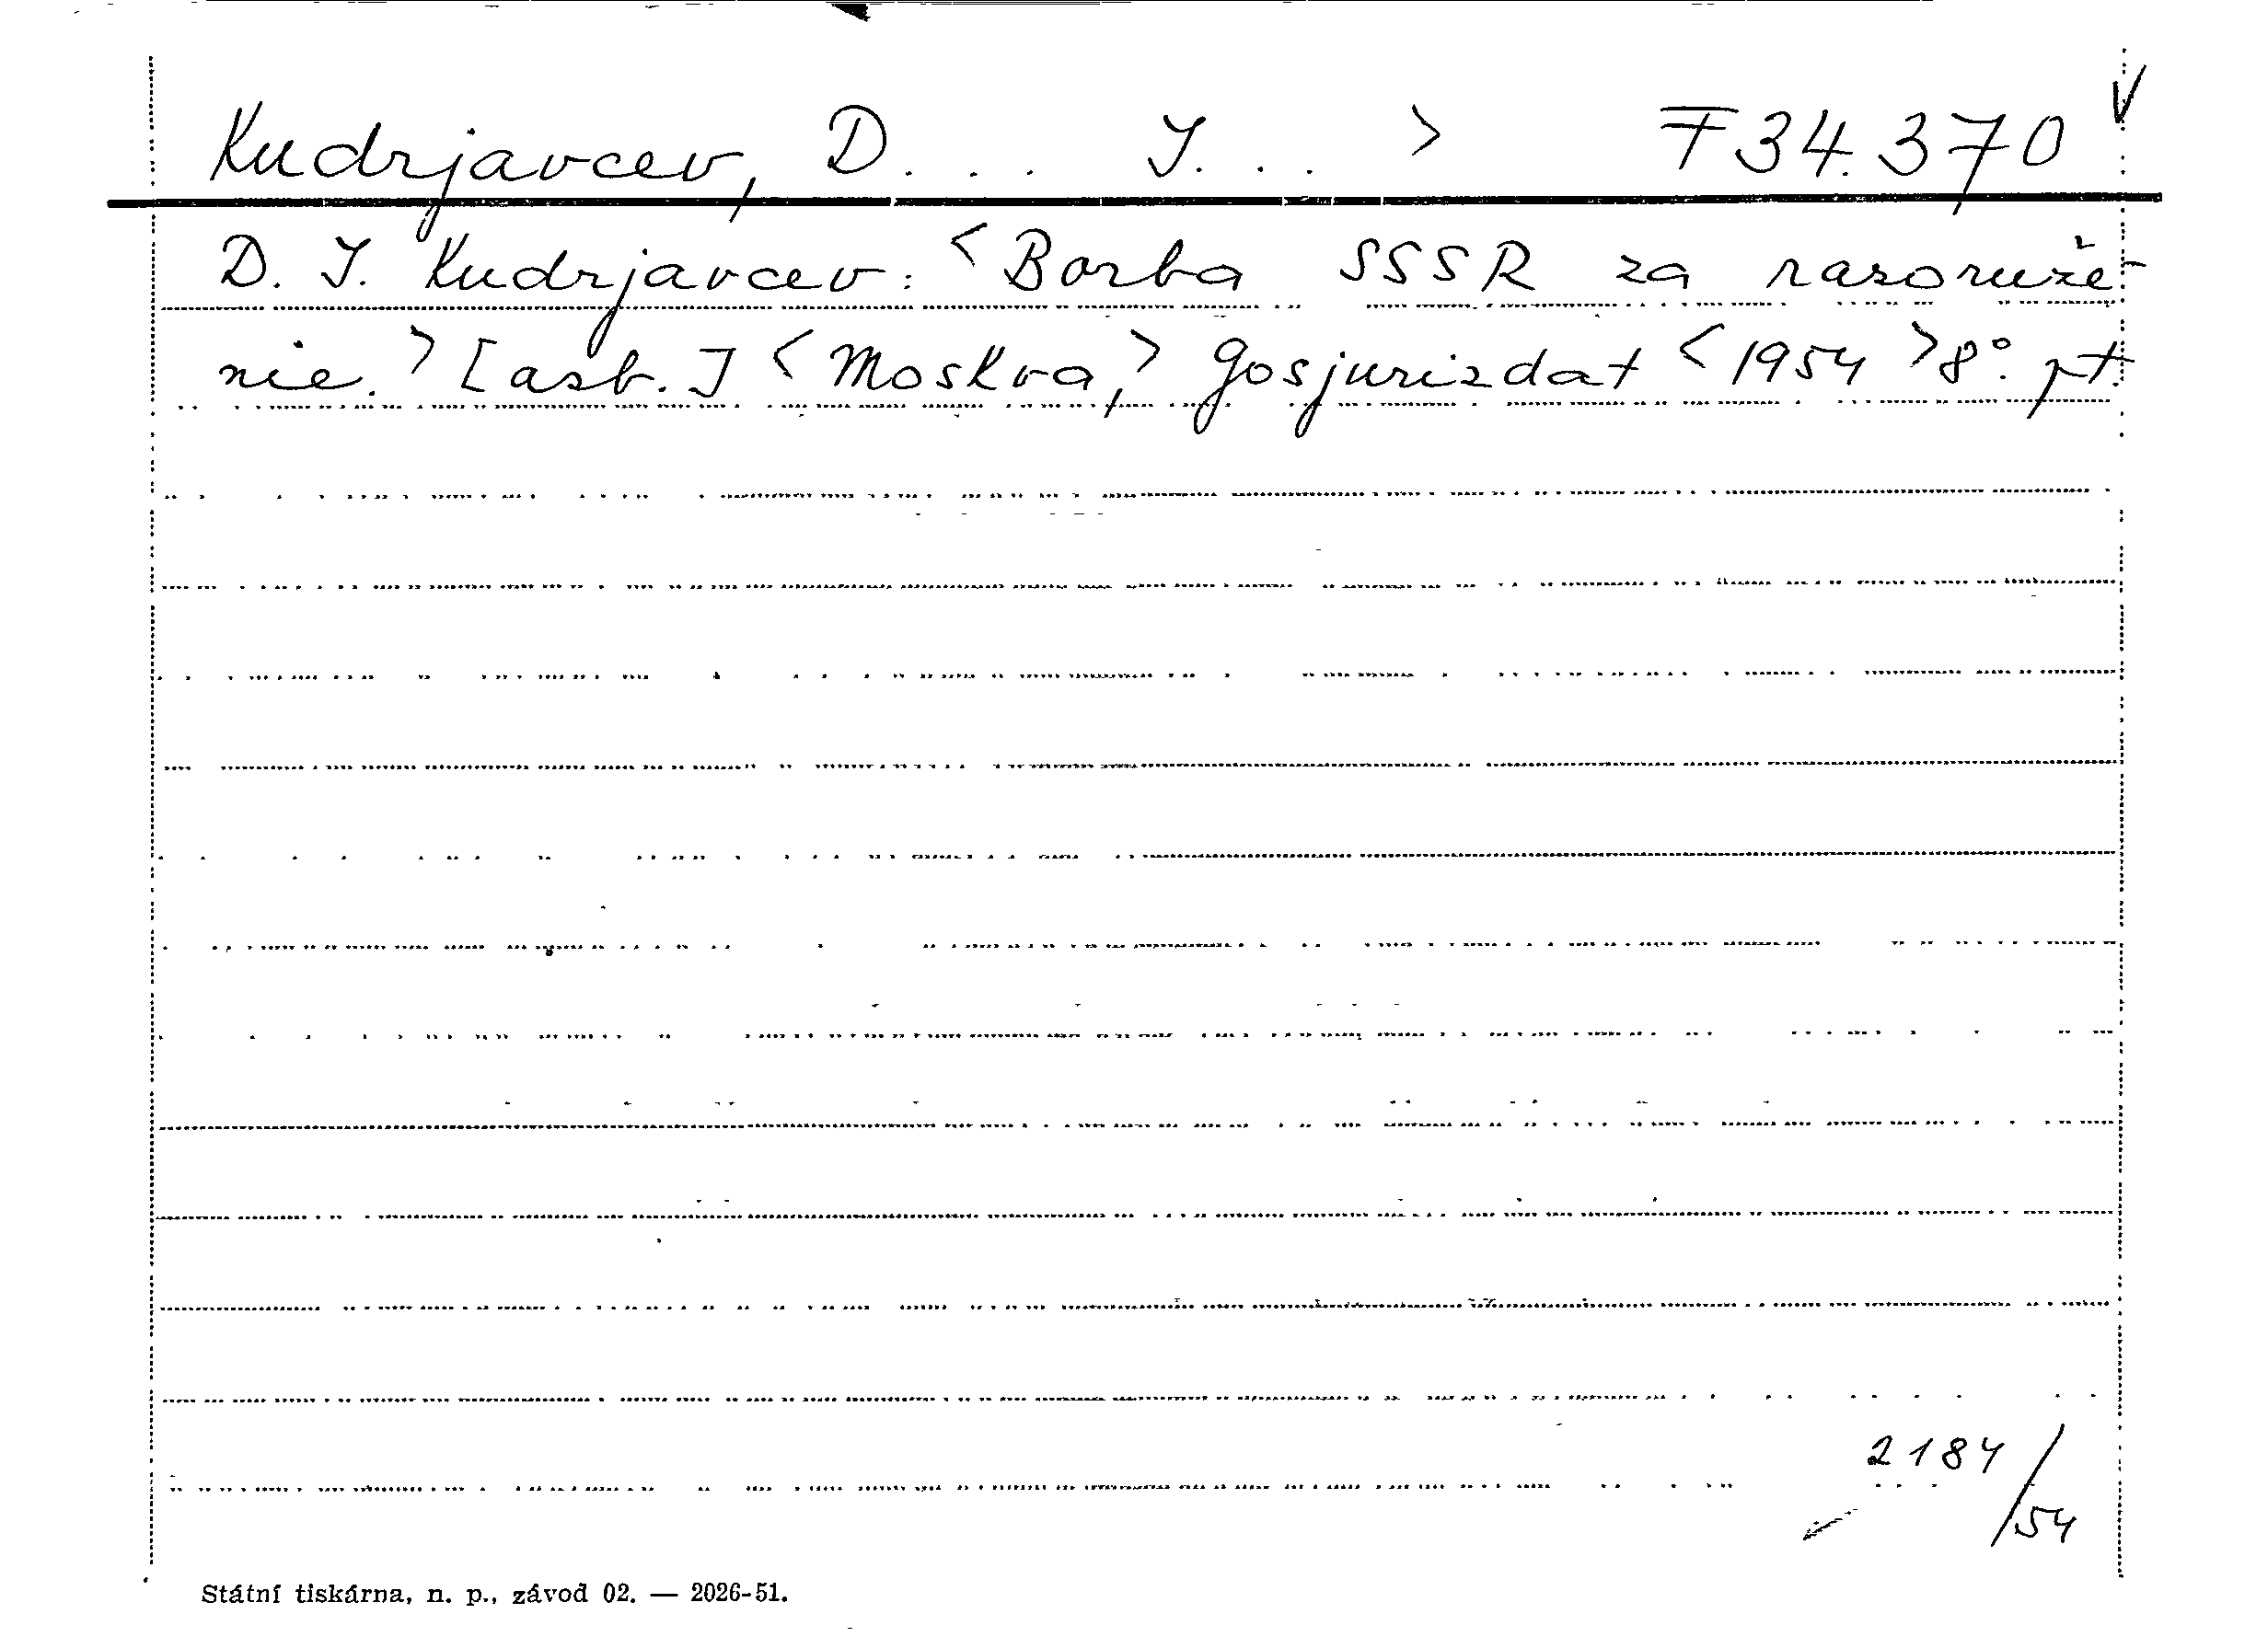 Kudrjavcev, D... J... > F 34.370 V
D. J. Kudrjavcev: <Borba SSSR za rasoruže-
nie.> [asb.] <Moskva,> Gosjurizdat <1954> 8°. pt.
2184/54
Státní tiskárna, n. p., závod 02. — 2026-51.